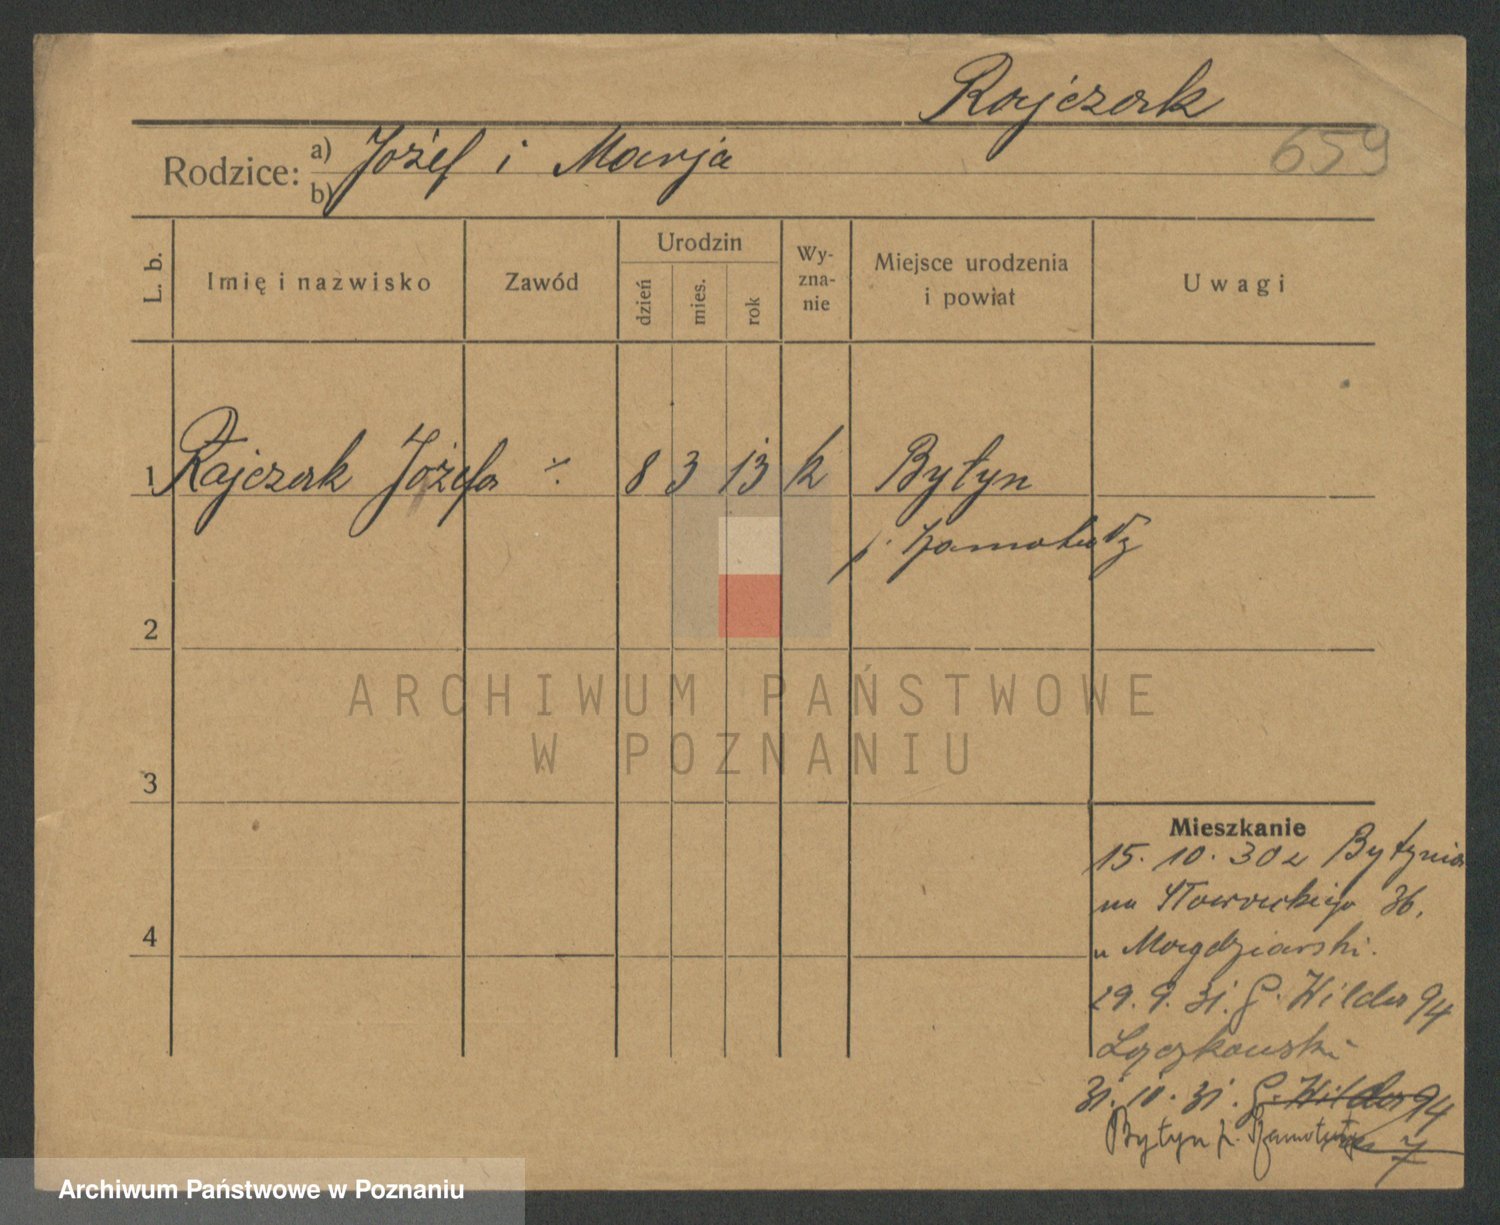 Rajczak
659
Rodzice: a) Józef i Marja
b)
L. b.
Imię i nazwisko
Zawód
Urodzin
dzień
mies.
rok
Wy-
zna-
nie
Miejsce urodzenia
i powiat
Uwagi
1 Rajczak Józefa ·/· 8 3 13 k Bytyn
p. Szamotuły
2
ARCHIWUM PAŃSTWOWE
W POZNANIU
3
Mieszkanie
15. 10. 30 z Bytynia
na Słowackiego 36.
u Magdziarski.
29. 9. 31. G. Wilda 94
Łączkowski
4
31. 10. 31. G. Wilda 94
Bytyn p. Szamotuły
Archiwum Państwowe w Poznaniu